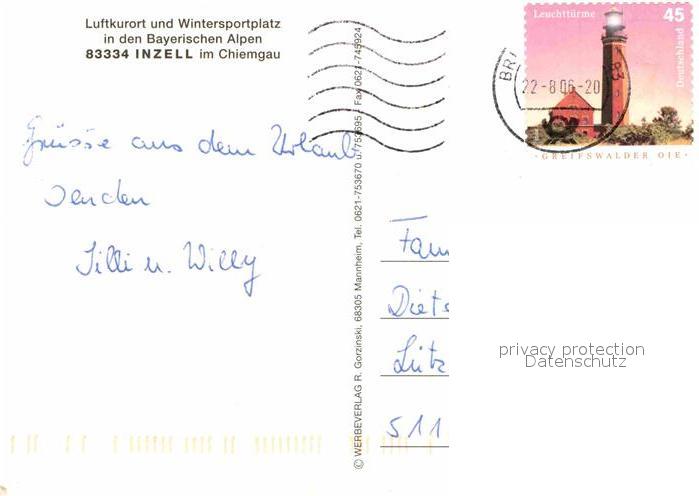 Luftkurort und Wintersportplatz
in den Bayerischen Alpen
83334 INZELL im Chiemgau
Grüsse aus dem Urlaub
senden
Silli u. Willy
© WERBEVERLAG R. Gorzinski, 68305 Mannheim, Tel. 0621-753670 u. 753695 · Fax 0621-745924
Leuchttürme 45
Deutschland
·GREIFSWALDER OIE·
BRI
22-8 06-20
Fam
Diet
Lütz
511
privacy protection
Datenschutz